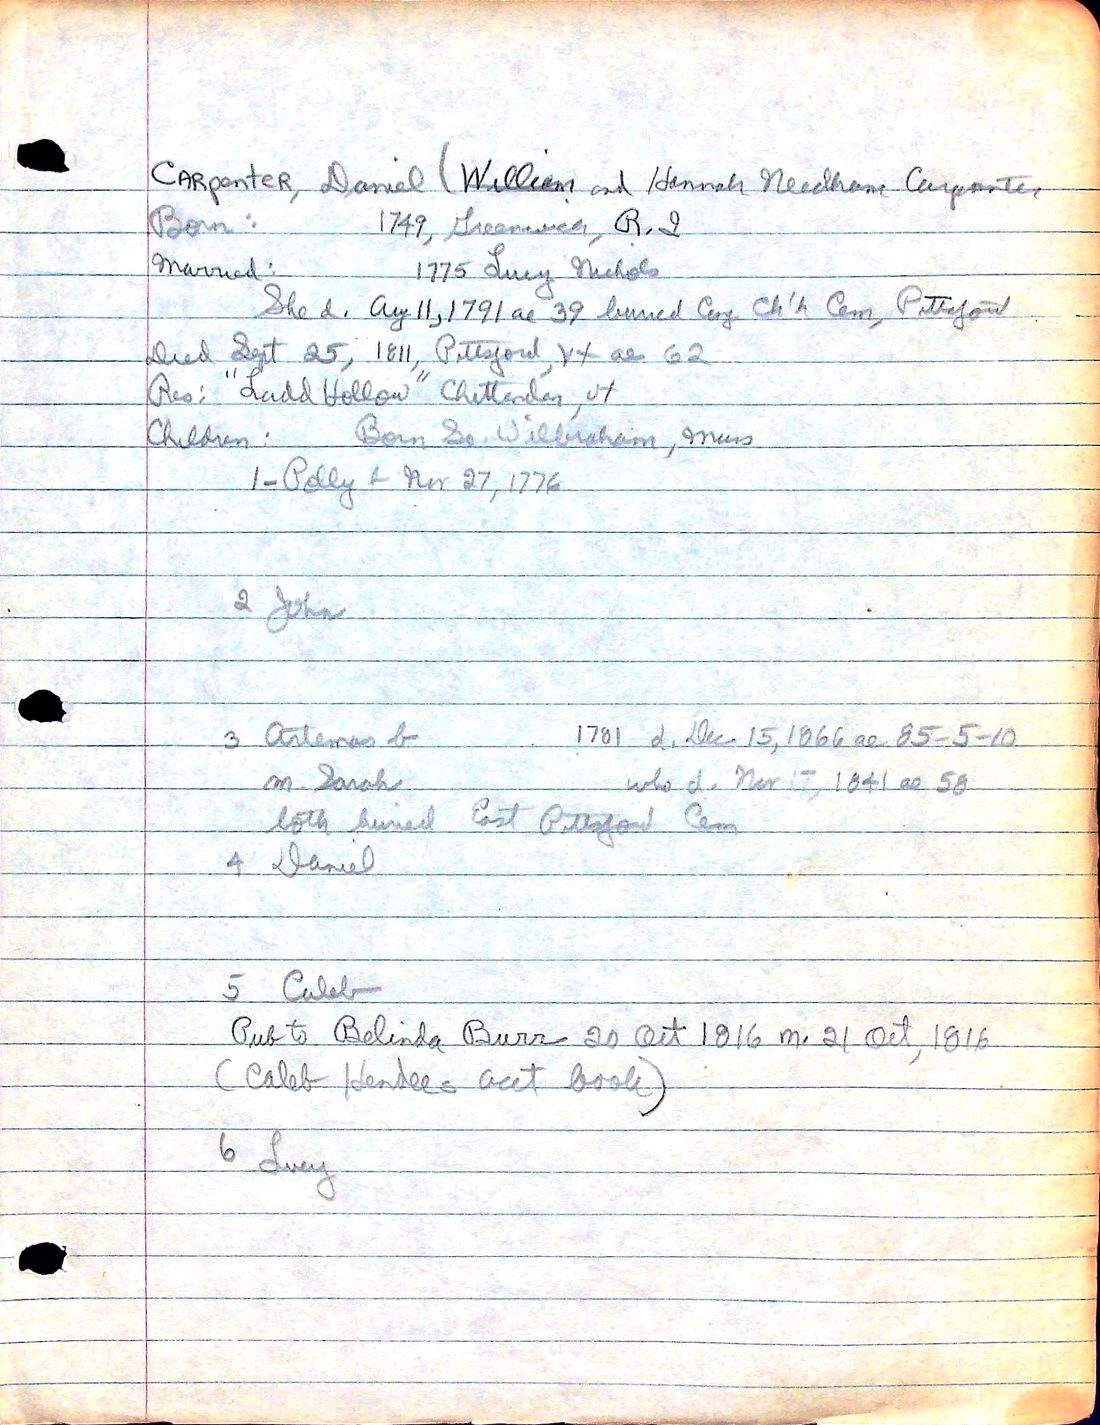 CARpenter, Daniel (William and Hannah Needham Carpenter
Born: 1749, Greenwich, R.I
Married: 1775 Lucy Nichols
She d. Aug 11, 1791 ae 39 buried Cong Ch'h Cem, Pittsford
Died Sept 25, 1811, Pittsford, Vt ae 62
Res: "Ladd Hollow" Chittenden, Vt
Children: Born So. Wilbraham, Mass
1- Polly b Nov 27, 1776
2 John
3 Artemas b 1781 d. Dec 15, 1866 ae 85-5-10
m. Sarah who d. Nov 17, 1841 ae 58
both buried East Pittsford Cem
4 Daniel
5 Caleb
Pub to Belinda Burr 20 Oct 1816 m. 21 Oct, 1816
(Caleb Hendees acct book)
6 Lucy